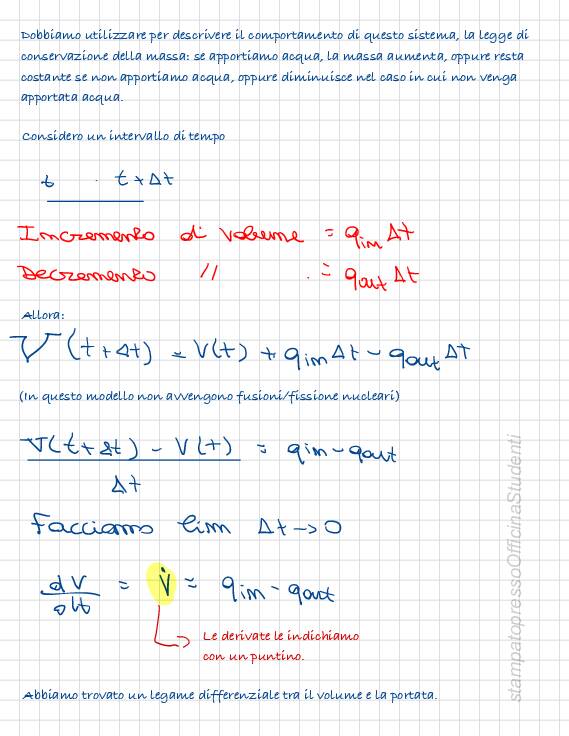 Dobbiamo utilizzare per descrivere il comportamento di questo sistema, la legge di
conservazione della massa: se apportiamo acqua, la massa aumenta, oppure resta
costante se non apportiamo acqua, oppure diminuisce nel caso in cui non venga
apportata acqua.
Considero un intervallo di tempo
t t+Δt
Incremento di volume = qin Δt
Decremento " = qout Δt
Allora:
V(t+Δt) = V(t) + qin Δt - qout Δt
(In questo modello non avvengono fusioni/fissione nucleari)
V(t+Δt) - V(t) = qin - qout
Δt
Facciamo lim Δt→0
dV/dt = V̇ = qin - qout
Le derivate le indichiamo
con un puntino.
Abbiamo trovato un legame differenziale tra il volume e la portata.
stampatopressoOfficinaStudenti